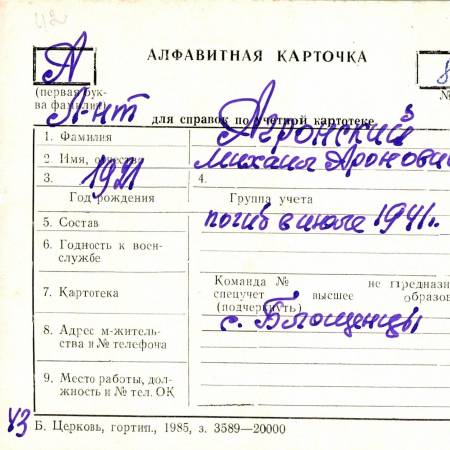 42
А
АЛФАВИТНАЯ КАРТОЧКА
8
(первая бук-
ва фамилии)
№
Л-нт
для справок по учетной картотеке
1. Фамилия Агронский
2. Имя, отчество Михаил Аронович
3. 1921
4.
Год рождения
Группа учета
5. Состав погиб в июле 1941 г.
6. Годность к воен-
службе
7. Картотека
Команда № не предназн
спецучет высшее образов
(подчеркнуть)
с. Благощенцы
8. Адрес м-житель-
ства и № телефона
9. Место работы, дол-
жность и № тел. ОК
43
Б. Церковь, гортип., 1985, з. 3589—20000